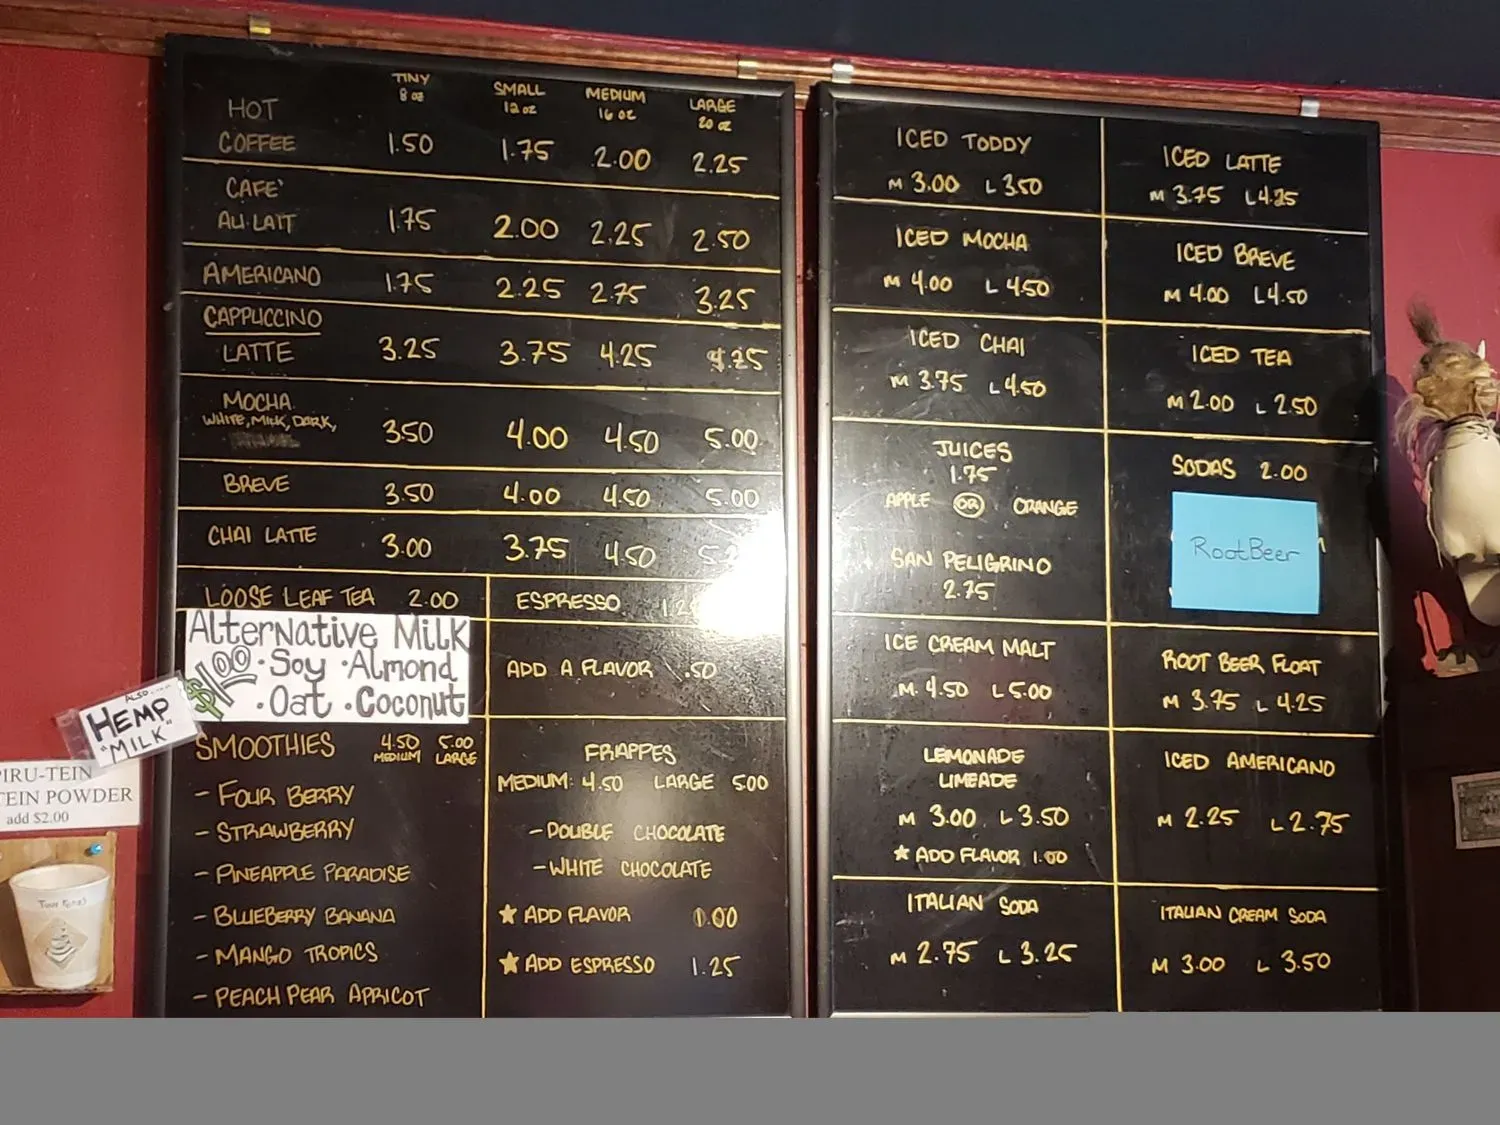 TINY SMALL MEDIUM LARGE
8 oz 12 oz 16 oz 20 oz
HOT
COFFEE 1.50 1.75 2.00 2.25
CAFE'
AU LAIT 1.75 2.00 2.25 2.50
AMERICANO 1.75 2.25 2.75 3.25
CAPPUCCINO
LATTE 3.25 3.75 4.25
MOCHA
WHITE, MILK, DARK,
3.50 4.00 4.50 5.00
BREVE 3.50 4.00 4.50 5.00
CHAI LATTE 3.00 3.75 4.50
LOOSE LEAF TEA 2.00
ALTERNATIVE MILK
$1.00 · SOY · ALMOND
· OAT · COCONUT
ALSO...
HEMP
"MILK"
SMOOTHIES 4.50 5.00
MEDIUM LARGE
- FOUR BERRY
- STRAWBERRY
- PINEAPPLE PARADISE
- BLUEBERRY BANANA
- MANGO TROPICS
- PEACH PEAR APRICOT
ESPRESSO
ADD A FLAVOR .50
FRAPPES
MEDIUM: 4.50 LARGE 5.00
- DOUBLE CHOCOLATE
- WHITE CHOCOLATE
★ ADD FLAVOR 1.00
★ ADD ESPRESSO 1.25
POWDER
add $2.00
ICED TODDY
M 3.00 L 3.50
ICED LATTE
M 3.75 L 4.25
ICED MOCHA
M 4.00 L 4.50
ICED BREVE
M 4.00 L 4.50
ICED CHAI
M 3.75 L 4.50
ICED TEA
M 2.00 L 2.50
JUICES
1.75
APPLE OR ORANGE
SAN PELIGRINO
2.75
SODAS 2.00
Root Beer
ICE CREAM MALT
M. 4.50 L 5.00
ROOT BEER FLOAT
M 3.75 L 4.25
LEMONADE
LIMEADE
M 3.00 L 3.50
★ ADD FLAVOR 1.00
ICED AMERICANO
M 2.25 L 2.75
ITALIAN SODA
M 2.75 L 3.25
ITALIAN CREAM SODA
M 3.00 L 3.50